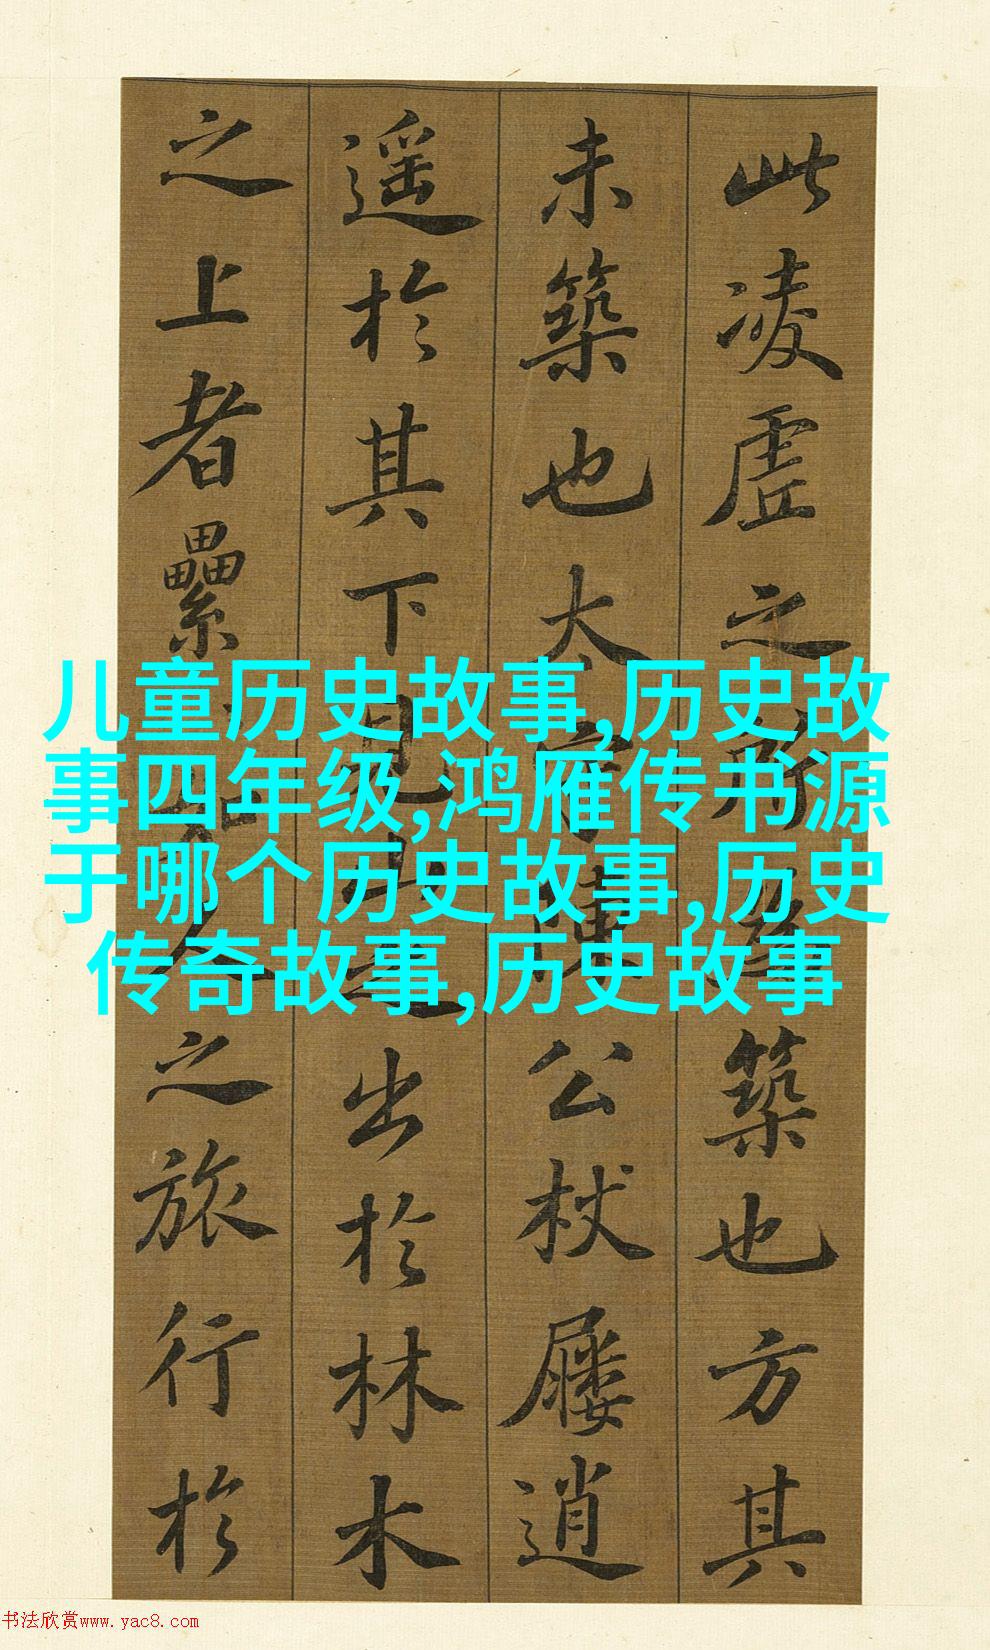 此凌虛之所為築也方其
未築也太守陳公杖屨逍
遥於其下見山之出於林木
之上者纍如人之旅行於
儿童历史故事,历史故
事四年级,鸿雁传书源
于哪个历史故事,历史
传奇故事,历史故事
书法欣赏www.yac8.com